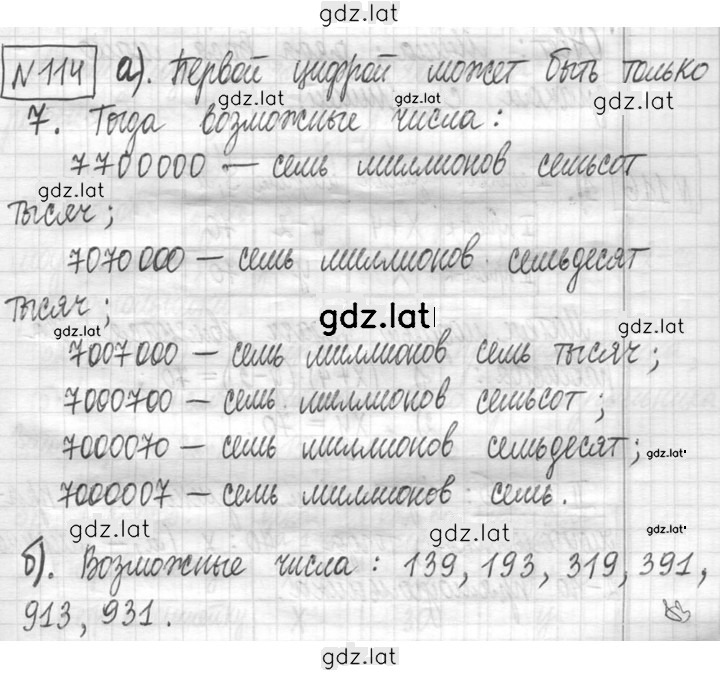 gdz.lat
№ 114 а). Первой цифрой может быть только
gdz.lat gdz.lat gdz.lat
7. Тогда возможные числа:
7700000 — семь миллионов семьсот
gdz.lat
тысяч;
7070000 — семь миллионов семьдесят
тысяч;
gdz.lat gdz.lat gdz.lat
7007000 — семь миллионов семь тысяч;
7000700 — семь миллионов семьсот;
7000070 — семь миллионов семьдесят; gdz.lat
7000007 — семь миллионов семь.
gdz.lat gdz.lat gdz.lat
б). Возможные числа: 139, 193, 319, 391,
913, 931.
gdz.lat